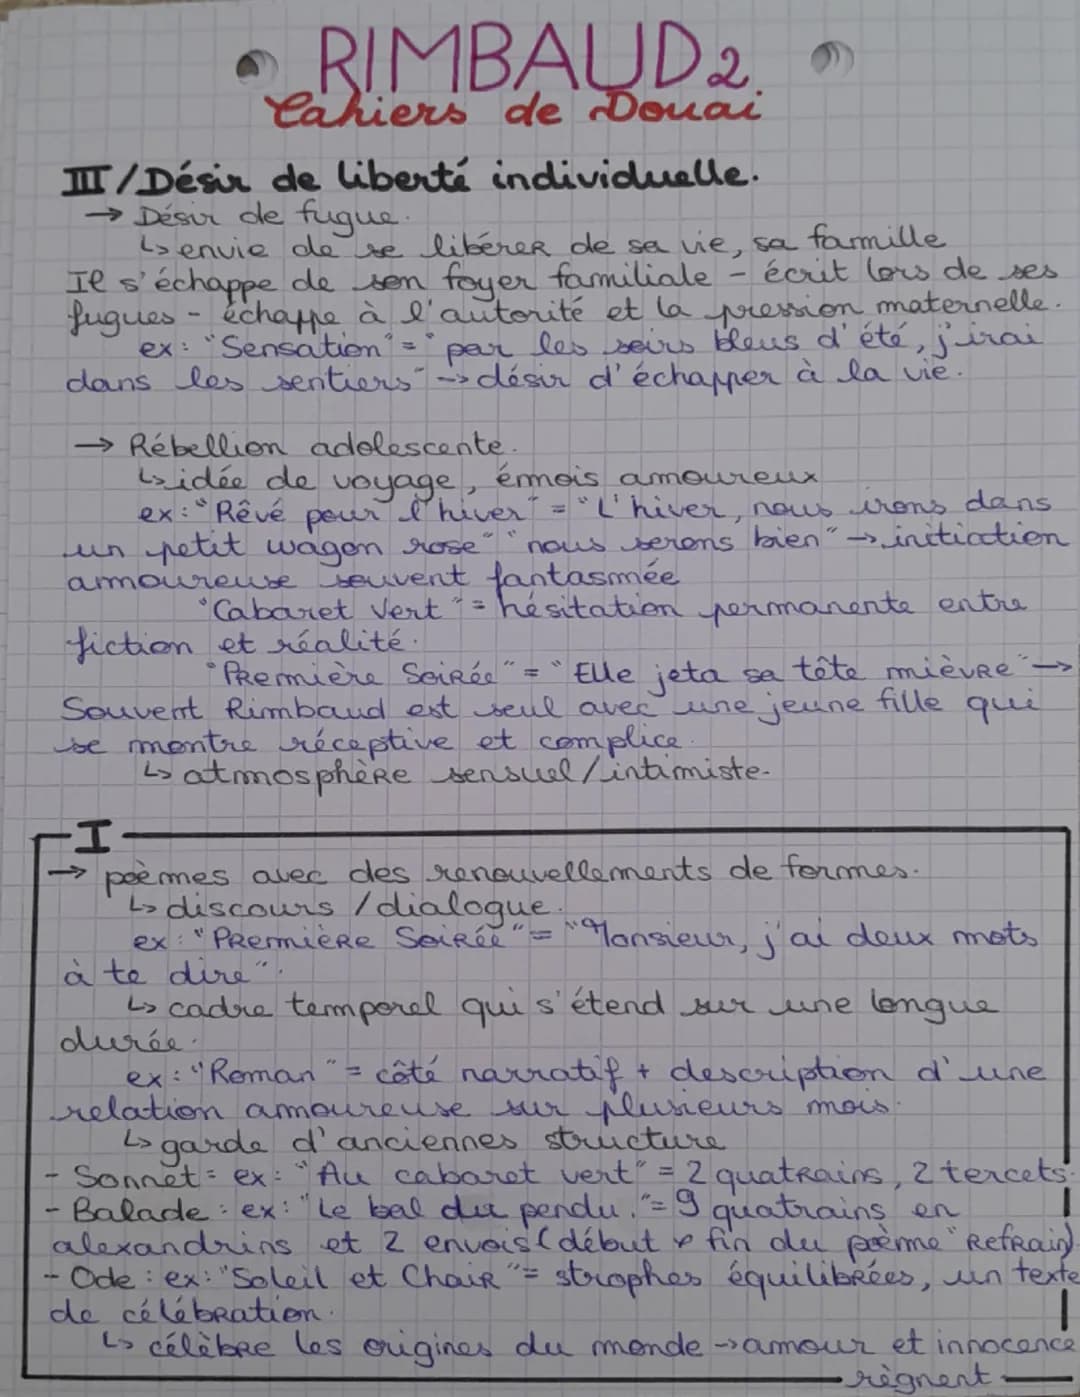 RIMBAUD 2
Cahiers de Douai
III/Désir de liberté individuelle.
→ Désir de fugue.
↳ envie de se libérer de sa vie, sa famille
Il s'échappe de son foyer familiale - écrit lors de ses
fugues - échappe à l'autorité et la pression maternelle.
ex: "Sensation" = "par les soirs bleus d'été, j'irai
dans les sentiers" → désir d'échapper à la vie.
→ Rébellion adolescente.
↳ idée de voyage, émois amoureux
ex: "Rêvé pour l'hiver" = "L'hiver, nous irons dans
un petit wagon rose" "nous serons bien" → initiation
amoureuse souvent fantasmée
"Cabaret Vert" = hésitation permanente entre
fiction et réalité.
"Première Soirée" = "Elle jeta sa tête mièvre" →
Souvent Rimbaud est seul avec une jeune fille qui
se montre réceptive et complice.
↳ atmosphère sensuel/intimiste.
I
→ poèmes avec des renouvellements de formes.
↳ discours / dialogue.
ex: "Première Soirée" = "Monsieur, j'ai deux mots
à te dire".
↳ cadre temporel qui s'étend sur une longue
durée.
ex: "Roman" = côté narratif + description d'une
relation amoureuse sur plusieurs mois.
↳ garde d'anciennes structure
- Sonnet = ex: "Au cabaret vert" = 2 quatrains, 2 tercets.
- Balade : ex: "Le bal du pendu." = 9 quatrains en
alexandrins et 2 envois (début & fin du poème "Refrain)
- Ode : ex: "Soleil et Chair" = strophes équilibrées, un texte
de célébration.
↳ célèbre les origines du monde → amour et innocence
règnent